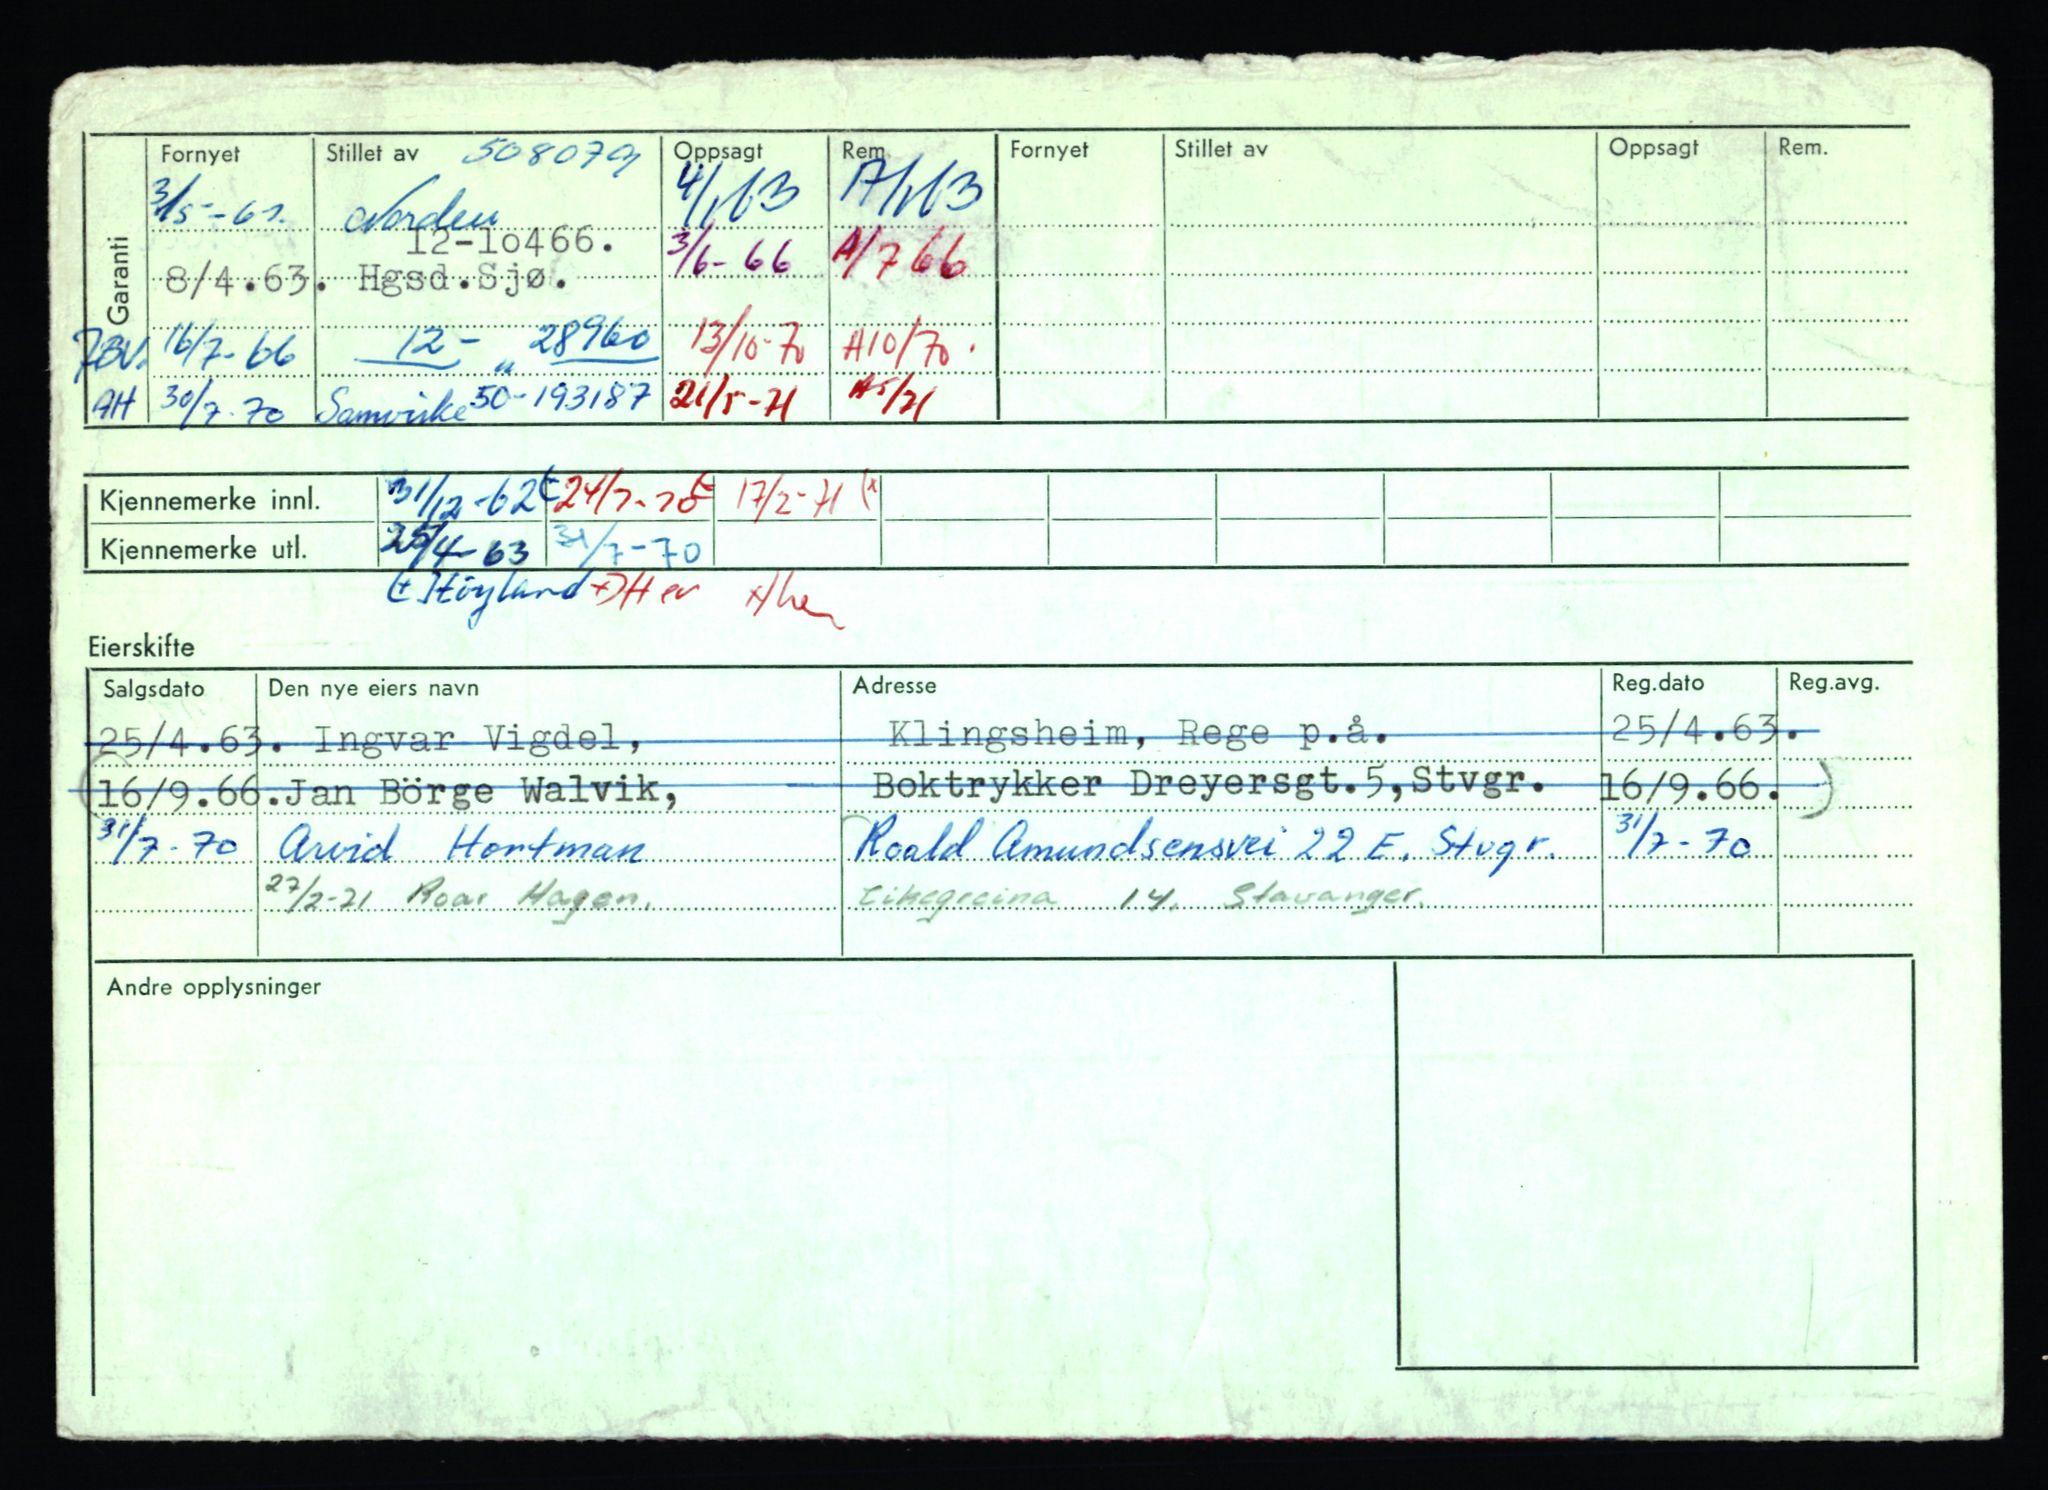 Garanti
Fornyet Stillet av 508079 Oppsagt Rem. Fornyet Stillet av Oppsagt Rem.
Norden 4/1 63 A/1 63
12-10466. 3/6-66 A/7 66
8/4.63. Hgsd.Sjø.
16/7-66 12- „ 28960 13/10-70 A10/70.
AH 30/7-70 Samvirke 50-193187 21/5-71 A5/71
Kjennemerke innl. 31/12-62 24/7-70 17/2-71 (x
Kjennemerke utl. 25/4-63 31/7-70
Höyland +) Her x) her
Eierskifte
Salgsdato Den nye eiers navn Adresse Reg.dato Reg.avg.
25/4.63. Ingvar Vigdel, Klingsheim, Rege p.å. 25/4.63.
(16/9.66. Jan Börge Walvik, Boktrykker Dreyersgt.5, Stvgr. 16/9.66. )
31/7-70 Arvid Hortman Roald Amundsensvei 22 E. Stvgr. 31/7-70
27/2-71 Roar Hagen. 14. Stavanger.
Andre opplysninger